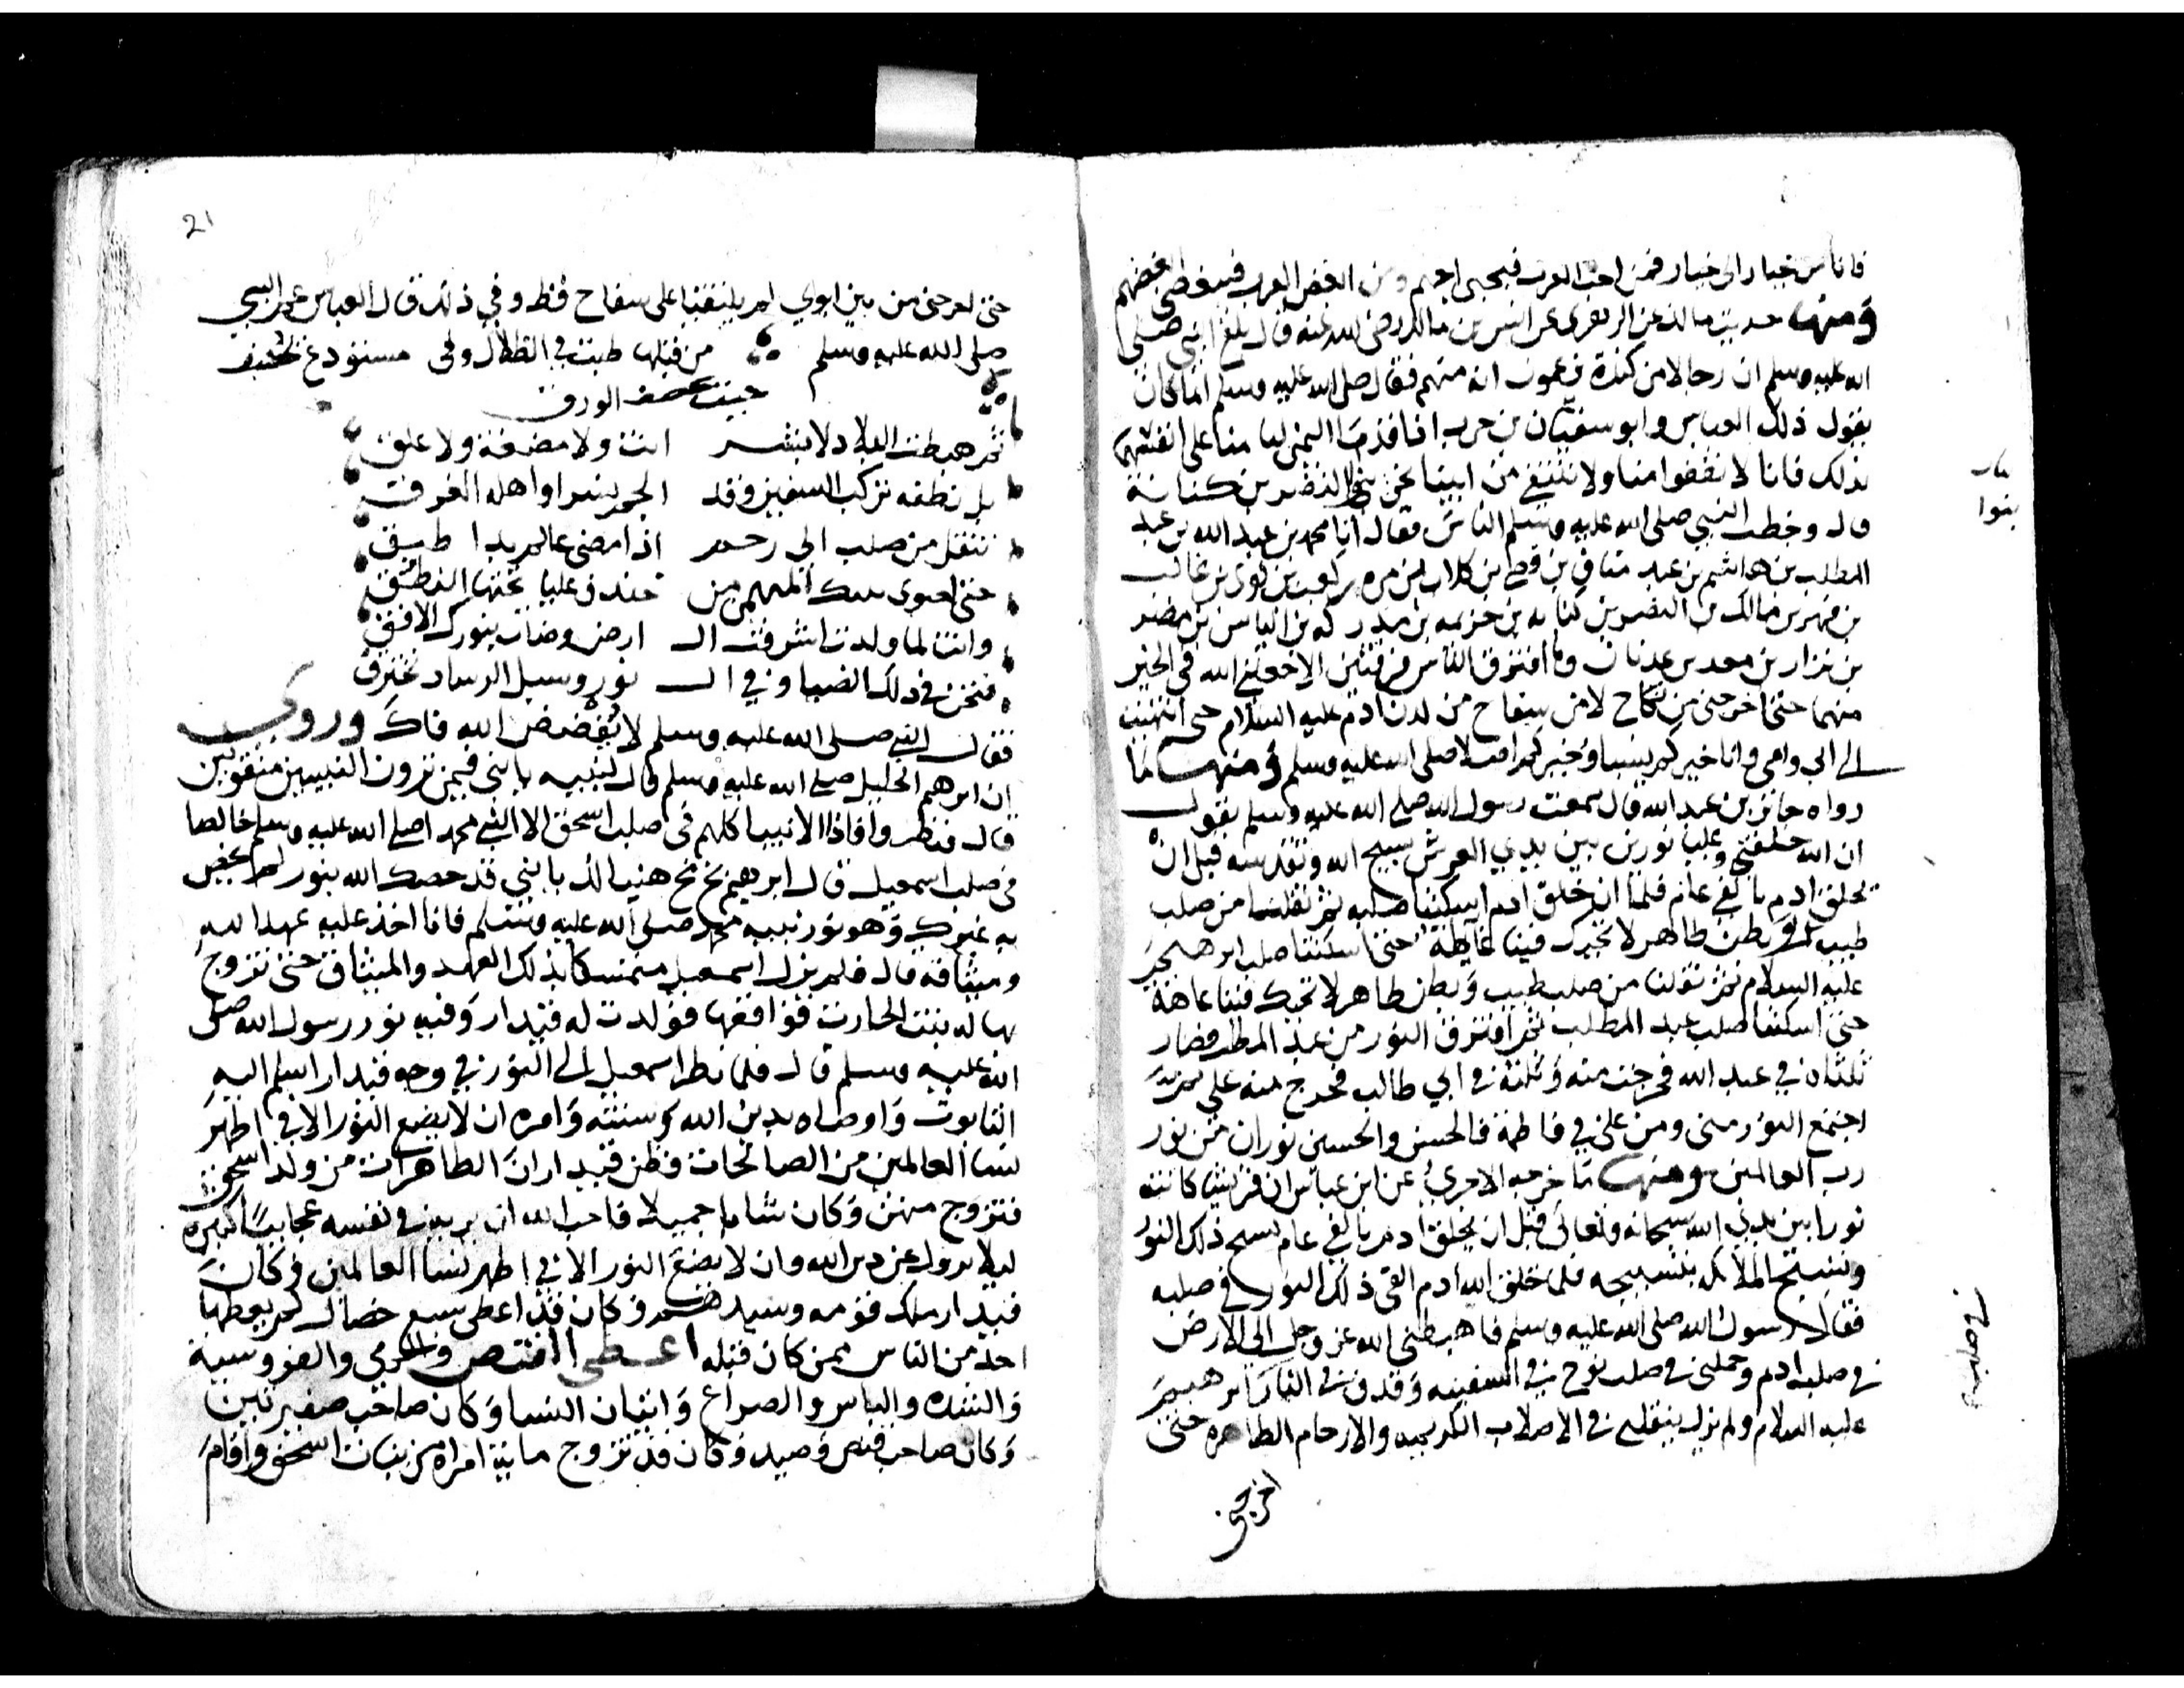 فانا من خيار الى خيار فمن احب العرب فبحبي احبهم ومن ابغض العرب فببغضي ابغضهم
ومنها حديث مالك عن الزهري عن انس بن مالك رضي الله عنه قال بلغ النبي صلى
الله عليه وسلم ان رجالا من كندة يزعمون انه منهم فقال صلى الله عليه وسلم انما كان
يقول ذلك العباس وابو سفيان بن حرب اذا قدما اليمن ليامنا على انفسهم
بذلك فانا لا نقفوا منا ولا ننتفي من ابينا نحن بني النضر بن كنانة
بنوا
قال وخطب النبي صلى الله عليه وسلم الناس فقال انا محمد بن عبد الله بن عبد
المطلب بن هاشم بن عبد مناف بن قصي بن كلاب بن مره بن كعب بن لوي بن غالب
بن فهر بن مالك بن النضر بن كنانه بن خزيمه بن مدركه بن الياس بن مضر
بن نزار بن معد بن عدنان وما افترق الناس فرقتين الا جعلني الله في الخير
منهما حتى اخرجني من نكاح لا من سفاح من لدن ادم عليه السلام حتى انتهيت
الى ابي وامي وانا خيركم نسبا وخيركم اصلا صلى الله عليه وسلم ومنها ما
رواه جابر بن عبد الله قال سمعت رسول الله صلى الله عليه وسلم يقول
ان الله خلقني وعليا نورين بين يدي العرش نسبح الله ونقدسه قبل ان
يخلق ادم بالفي عام فلما ان خلق ادم اسكننا صلبه ثم نقلنا من صلب
طيب وبطن طاهر لا تحيك فينا عايطة حتى اسكننا صلب ابرهيم
عليه السلام ثم نقلنا من صلب طيب وبطن طاهر لا تحيك فينا عاهة
حتى اسكننا صلب عبد المطلب ثم افترق النور من عبد المطلب فصار
ثلثاه في عبد الله فخرجت منه وثلثه في ابي طالب فخرج منه علي ثم
اجتمع النور مني ومن علي في فاطمة فالحسن والحسين نوران من نور
رب العالمين ومنها ما خرجه الاجري عن ابن عباس ان قريشا كانت
نورا بين يدي الله سبحانه وتعالى قبل ان يخلق ادم بالفي عام يسبح ذلك النور
وتسبح الملائكه بتسبيحه فلما خلق الله ادم القى ذلك النور في صلبه
في صلبه
فقال رسول الله صلى الله عليه وسلم فاهبطني الله عز وجل الى الارض
في صلب ادم وحملني في صلب نوح في السفينه وقذف بي في النار ابرهيم
عليه السلام ولم يزل ينقلني في الاصلاب الكريمه والارحام الطاهره حتى
اخرجني
21
حتى اخرجني من بين ابوي لم يلتقيا على سفاح قط وفي ذلك قال العباس عم النبي
صلى الله عليه وسلم من قبلها طبت في الظلال وفي مستودع
حيث يخصف الورق
ثم هبطت البلاد لا بشر انت ولا مضغة ولا علق
بل نطفه تركب السفين وقد الجم نسرا واهله الغرق
تنقل من صلب الى رحم اذا مضى عالم بدا طبق
حتى احتوى بيتك المهيمن من خندف عليا تحتها النطق
وانت لما ولدت اشرقت الـ ارض وضات بنورك الافق
فنحن في ذلك الضيا وفي الـ نور وسبل الرشاد نخترق
فقال النبي صلى الله عليه وسلم لا يفضض الله فاك وروي
ان ابرهيم الخليل صلى الله عليه وسلم قال لبنيه يا بني فيمن ترون النبيين متفوين
قال فنظروا فاذا الانبيا كلهم في صلب اسحق الا النبي محمدا صلى الله عليه وسلم خالصا
في صلب اسمعيل قال ابرهيم بخ بخ هنيا لك يا بني قد خصك الله بنور لم يخص
به غيرك وهو نور نبيه محمد صلى الله عليه وسلم فانا اخذ عليه عهد الله
وميثاقه قال فلم يزل اسمعيل متمسكا بذلك العهد والميثاق حتى تزوج
بهاله بنت الحارث فواقعها فولدت له قيدار وفيه نور رسول الله صلى
الله عليه وسلم قال فلما نظر اسمعيل الى النور في وجه قيدار اسلم اليه
التابوت واوصاه بدين الله وسنته وامره ان لا يضع النور الا في اطهر
نسا العالمين من الصالحات فظن قيدار ان الطاهرات من ولد اسحق
فتزوج منهن وكان شابا جميلا فاحب الله ان يريه في نفسه عجايبا كثيره
ليلا يزول عن دين الله وان لا يضع النور الا في اطهر نسا العالمين وكان
قيدار ملك قومه وسيدهم وكان قد اعطى سبع خصال لم يعطها
احد من الناس ممن كان قبله اعطي القنص والرمي والفروسية
والشده والباس والصراع واتيان النسا وكان صاحب ضفيرتين
وكان صاحب قنص وصيد وكان قد تزوج ماية امراة من بنات اسحق واقام